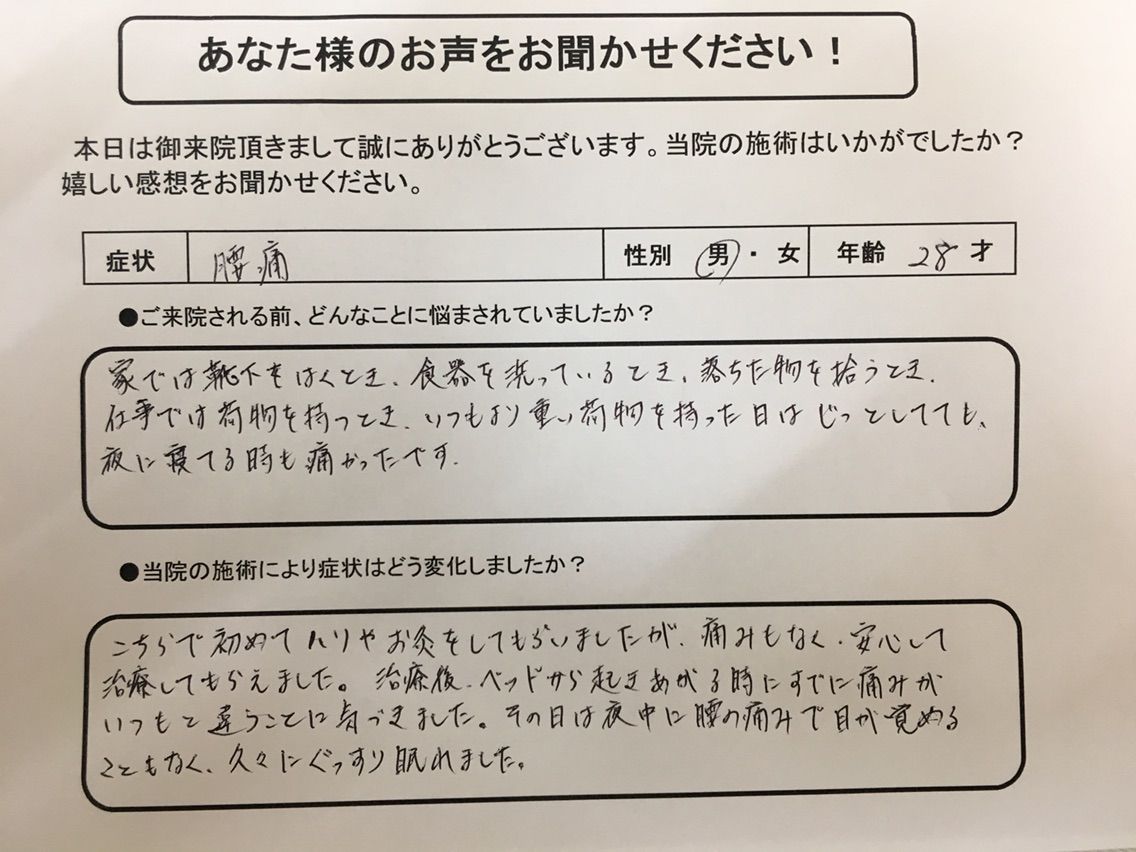 あなた様のお声をお聞かせください！
本日は御来院頂きまして誠にありがとうございます。当院の施術はいかがでしたか？
嬉しい感想をお聞かせください。
症状 腰痛 性別 男・女 年齢 28 才
●ご来院される前、どんなことに悩まされていましたか？
家では靴下をはくとき、食器を洗っているとき、落ちた物を拾うとき、
仕事では荷物を持つとき、いつもより重い荷物を持った日はじっとしてても、
夜に寝てる時も痛かったです.
●当院の施術により症状はどう変化しましたか？
こちらで初めてハリやお灸をしてもらいましたが、痛みもなく、安心して
治療してもらえました。治療後、ベッドから起きあがる時にすでに痛みが
いつもと違うことに気づきました。その日は夜中に腰の痛みで目が覚める
こともなく、久々にぐっすり眠れました。